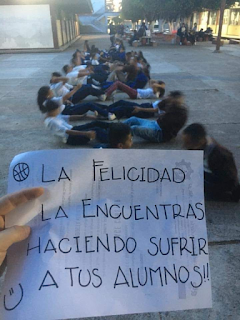 LA FELICIDAD
LA ENCUENTRAS
HACIENDO SUFRIR
A TUS ALUMNOS!!